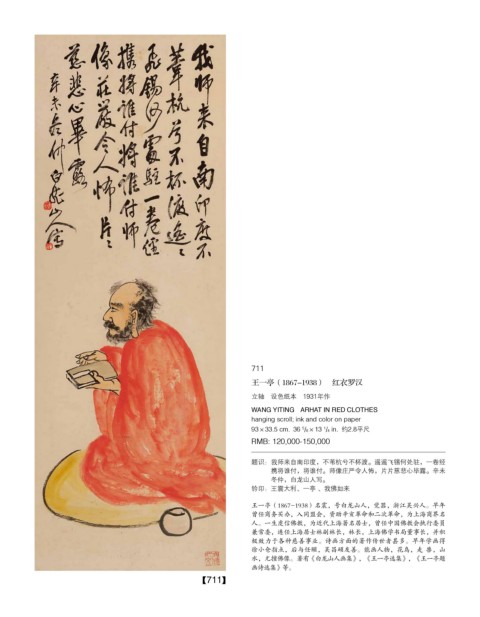 我师来自南印度不
苇杭兮不杯渡遥〻
飞锡何处驻一卷经
携将谁付将谁付师
像庄严令人怖片〻
慈悲心毕露
辛未冬仲白龙山人写
711
王一亭（1867-1938） 红衣罗汉
立轴 设色纸本 1931年作
WANG YITING ARHAT IN RED CLOTHES
hanging scroll; ink and color on paper
93×33.5 cm. 36 5/8 × 13 1/4 in. 约2.8平尺
RMB: 120,000-150,000
题识：我师来自南印度，不苇杭兮不杯渡。遥遥飞锡何处驻，一卷经
携将谁付，将谁付。师像庄严令人怖，片片慈悲心毕露。辛未
冬仲，白龙山人写。
钤印：王震大利、一亭、我佛如来
王一亭（1867-1938）名震，号白龙山人，觉器，浙江吴兴人。早年
曾任商务买办，入同盟会，资助辛亥革命和二次革命，为上海商界名
人。一生虔信佛教，为近代上海著名居士，曾任中国佛教会执行委员
兼常委，连任上海居士林副林长，林长，上海佛学书局董事长，并积
极致力于各种慈善事业。诗画方面的著作传世者甚多。早年学画得
徐小仓指点，后与任颐，吴昌硕友善。能画人物，花鸟，走兽，山
水，尤擅佛像。著有《白龙山人画集》，《王一亭选集》，《王一亭题
画诗选集》等。
【711】